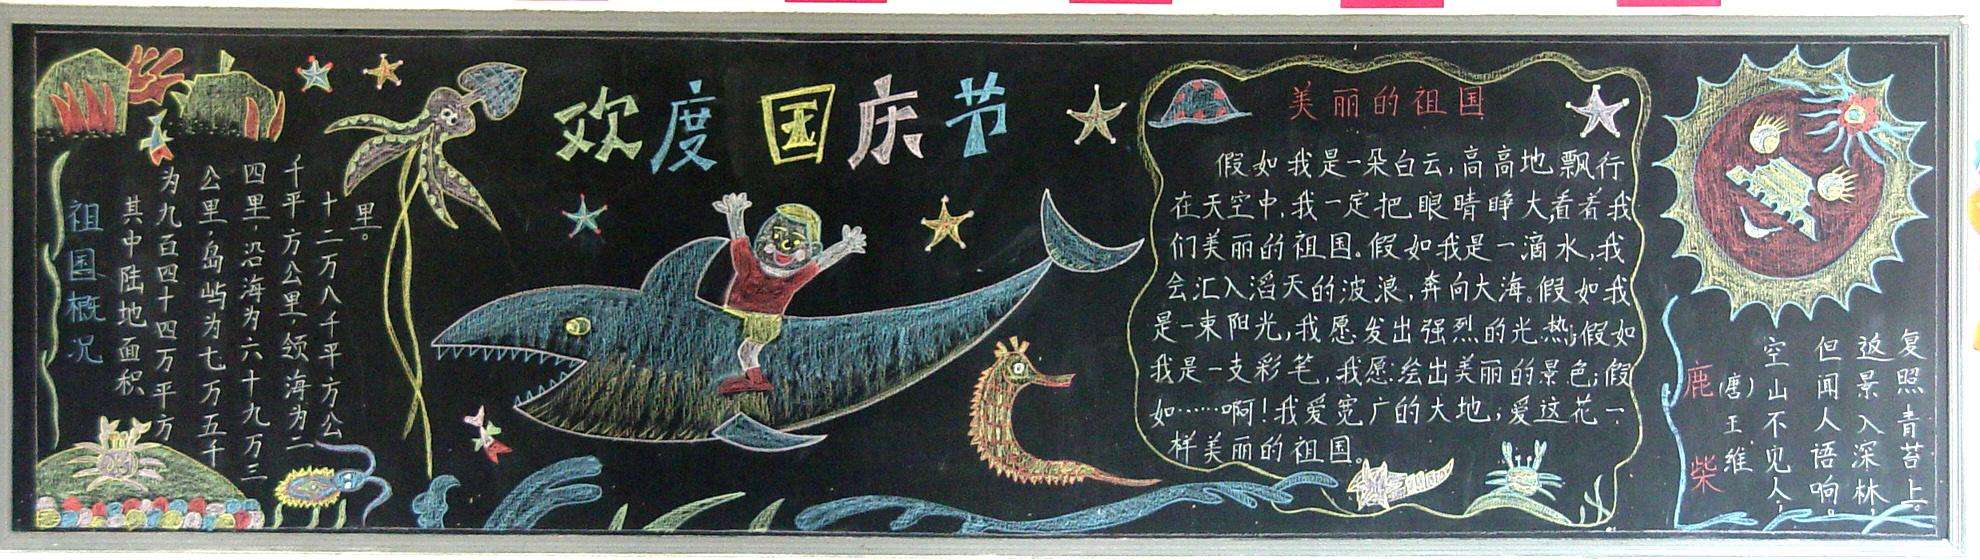 祖国概况
其中陆地面积
为九百四十四万平方
公里,岛屿为七万五千
四里,沿海为六十九万三
千平方公里,领海为二
十二万八千平方公
里。
欢度国庆节
美丽的祖国
假如我是一朵白云,高高地飘行
在天空中,我一定把眼睛睁大,看着我
们美丽的祖国。假如我是一滴水,我
会汇入滔天的波浪,奔向大海。假如我
是一束阳光,我愿发出强烈的光热;假如
我是一支彩笔,我愿绘出美丽的景色;假
如……啊!我爱宽广的大地;爱这花一
样美丽的祖国。
鹿柴
(唐)王维
空山不见人,
但闻人语响。
返景入深林,
复照青苔上。